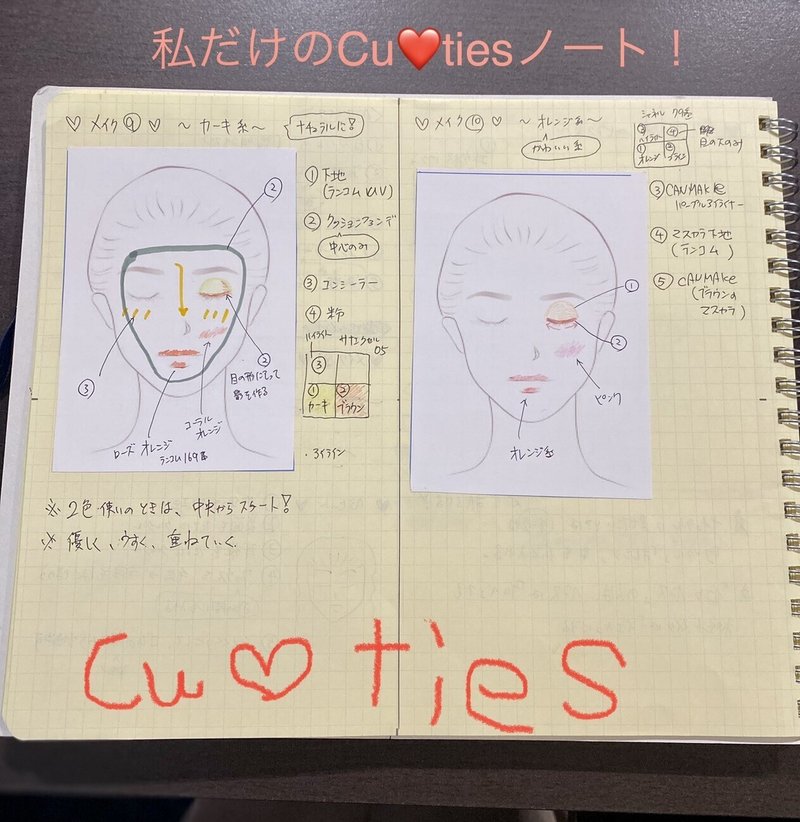 私だけのCu❤tiesノート！
♡ メイク⑨ ♡ 〜 カーキ系〜
ナチュラルに!
①下地
(ランコム UV)
②クッションファンデ
中心のみ
③コンシーラー
④粉
ハイライト
05
③
①
②
カーキ
ブラウン
・アイライン
②
③
②
目の形にそって
影を作る
コーラル
オレンジ
ローズ オレンジ
ランコム169番
※ 2色使いのときは、中央からスタート!
※ 優しく、うすく、重ねていく
♡ メイク⑩ ♡ 〜オレンジ系〜
かわいい系
シャネル
③
④
ハイライト
①
②
オレンジ
目の下のみ
③CANMAKE
パープルアイライナー
④マスカラ下地
(ランコム)
⑤CANMAKE
(ブラウンの
マスカラ)
①
②
ピンク
オレンジ系
Cu♡ties